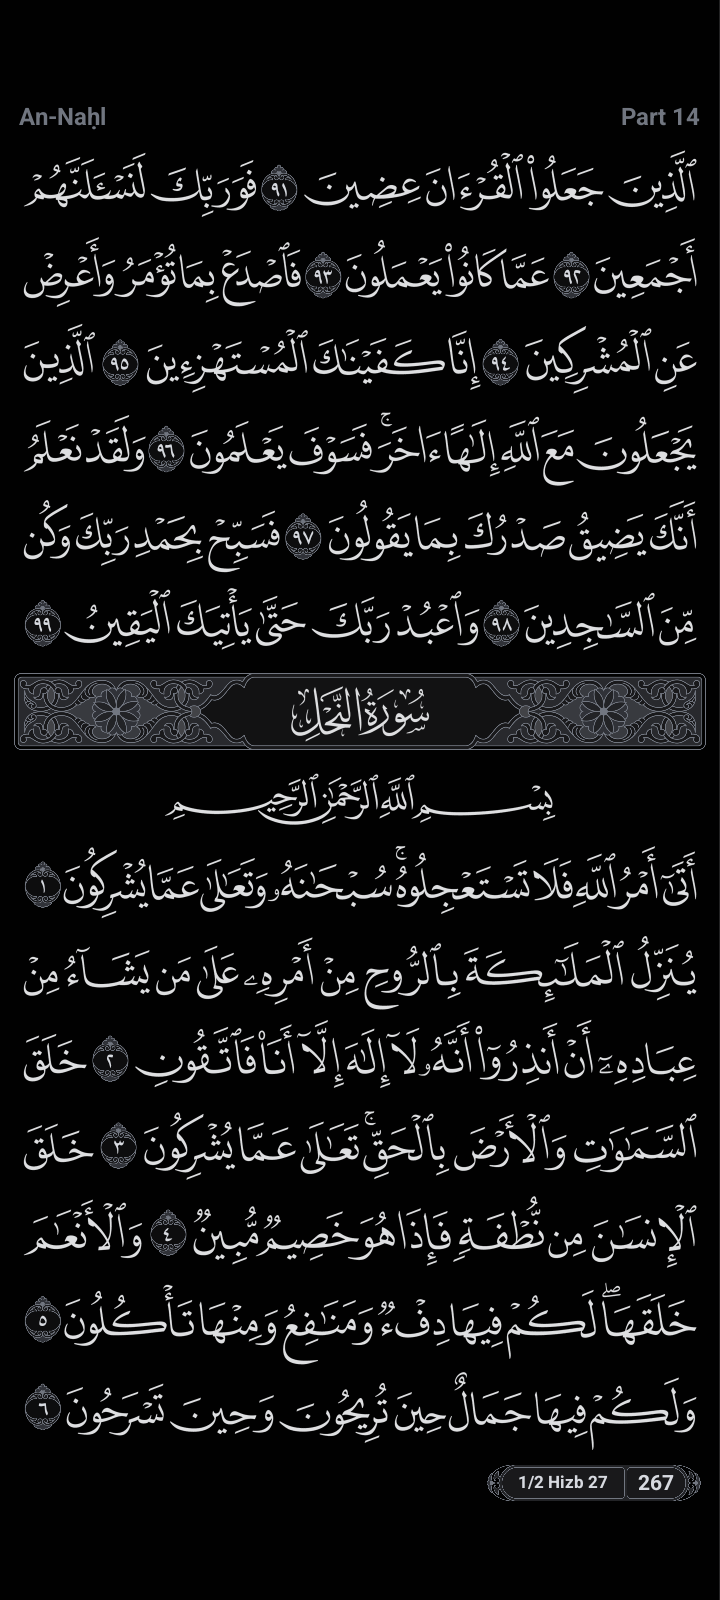 An-Naḥl
Part 14
ٱلَّذِينَ جَعَلُوا۟ ٱلْقُرْءَانَ عِضِينَ ٩١ فَوَرَبِّكَ لَنَسْـَٔلَنَّهُمْ
أَجْمَعِينَ ٩٢ عَمَّا كَانُوا۟ يَعْمَلُونَ ٩٣ فَٱصْدَعْ بِمَا تُؤْمَرُ وَأَعْرِضْ
عَنِ ٱلْمُشْرِكِينَ ٩٤ إِنَّا كَفَيْنَـٰكَ ٱلْمُسْتَهْزِءِينَ ٩٥ ٱلَّذِينَ
يَجْعَلُونَ مَعَ ٱللَّهِ إِلَـٰهًا ءَاخَرَ ۚ فَسَوْفَ يَعْلَمُونَ ٩٦ وَلَقَدْ نَعْلَمُ
أَنَّكَ يَضِيقُ صَدْرُكَ بِمَا يَقُولُونَ ٩٧ فَسَبِّحْ بِحَمْدِ رَبِّكَ وَكُن
مِّنَ ٱلسَّـٰجِدِينَ ٩٨ وَٱعْبُدْ رَبَّكَ حَتَّىٰ يَأْتِيَكَ ٱلْيَقِينُ ٩٩
سُورَةُ النَّحْلِ
بِسْمِ ٱللَّهِ ٱلرَّحْمَـٰنِ ٱلرَّحِيمِ
أَتَىٰٓ أَمْرُ ٱللَّهِ فَلَا تَسْتَعْجِلُوهُ ۚ سُبْحَـٰنَهُۥ وَتَعَـٰلَىٰ عَمَّا يُشْرِكُونَ ١
يُنَزِّلُ ٱلْمَلَـٰٓئِكَةَ بِٱلرُّوحِ مِنْ أَمْرِهِۦ عَلَىٰ مَن يَشَآءُ مِنْ
عِبَادِهِۦٓ أَنْ أَنذِرُوٓا۟ أَنَّهُۥ لَآ إِلَـٰهَ إِلَّآ أَنَا۠ فَٱتَّقُونِ ٢ خَلَقَ
ٱلسَّمَـٰوَٰتِ وَٱلْأَرْضَ بِٱلْحَقِّ ۚ تَعَـٰلَىٰ عَمَّا يُشْرِكُونَ ٣ خَلَقَ
ٱلْإِنسَـٰنَ مِن نُّطْفَةٍ فَإِذَا هُوَ خَصِيمٌ مُّبِينٌ ٤ وَٱلْأَنْعَـٰمَ
خَلَقَهَا ۗ لَكُمْ فِيهَا دِفْءٌ وَمَنَـٰفِعُ وَمِنْهَا تَأْكُلُونَ ٥
وَلَكُمْ فِيهَا جَمَالٌ حِينَ تُرِيحُونَ وَحِينَ تَسْرَحُونَ ٦
1/2 Hizb 27
267